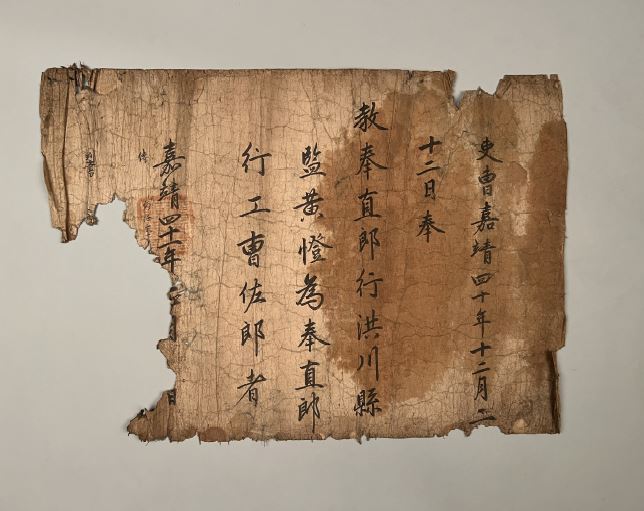 吏曹嘉靖四十年十二月二
十二日奉
教奉直郎行洪川縣
監黃憕為奉直郎
行工曹佐郎者
嘉靖四十一年 月 日